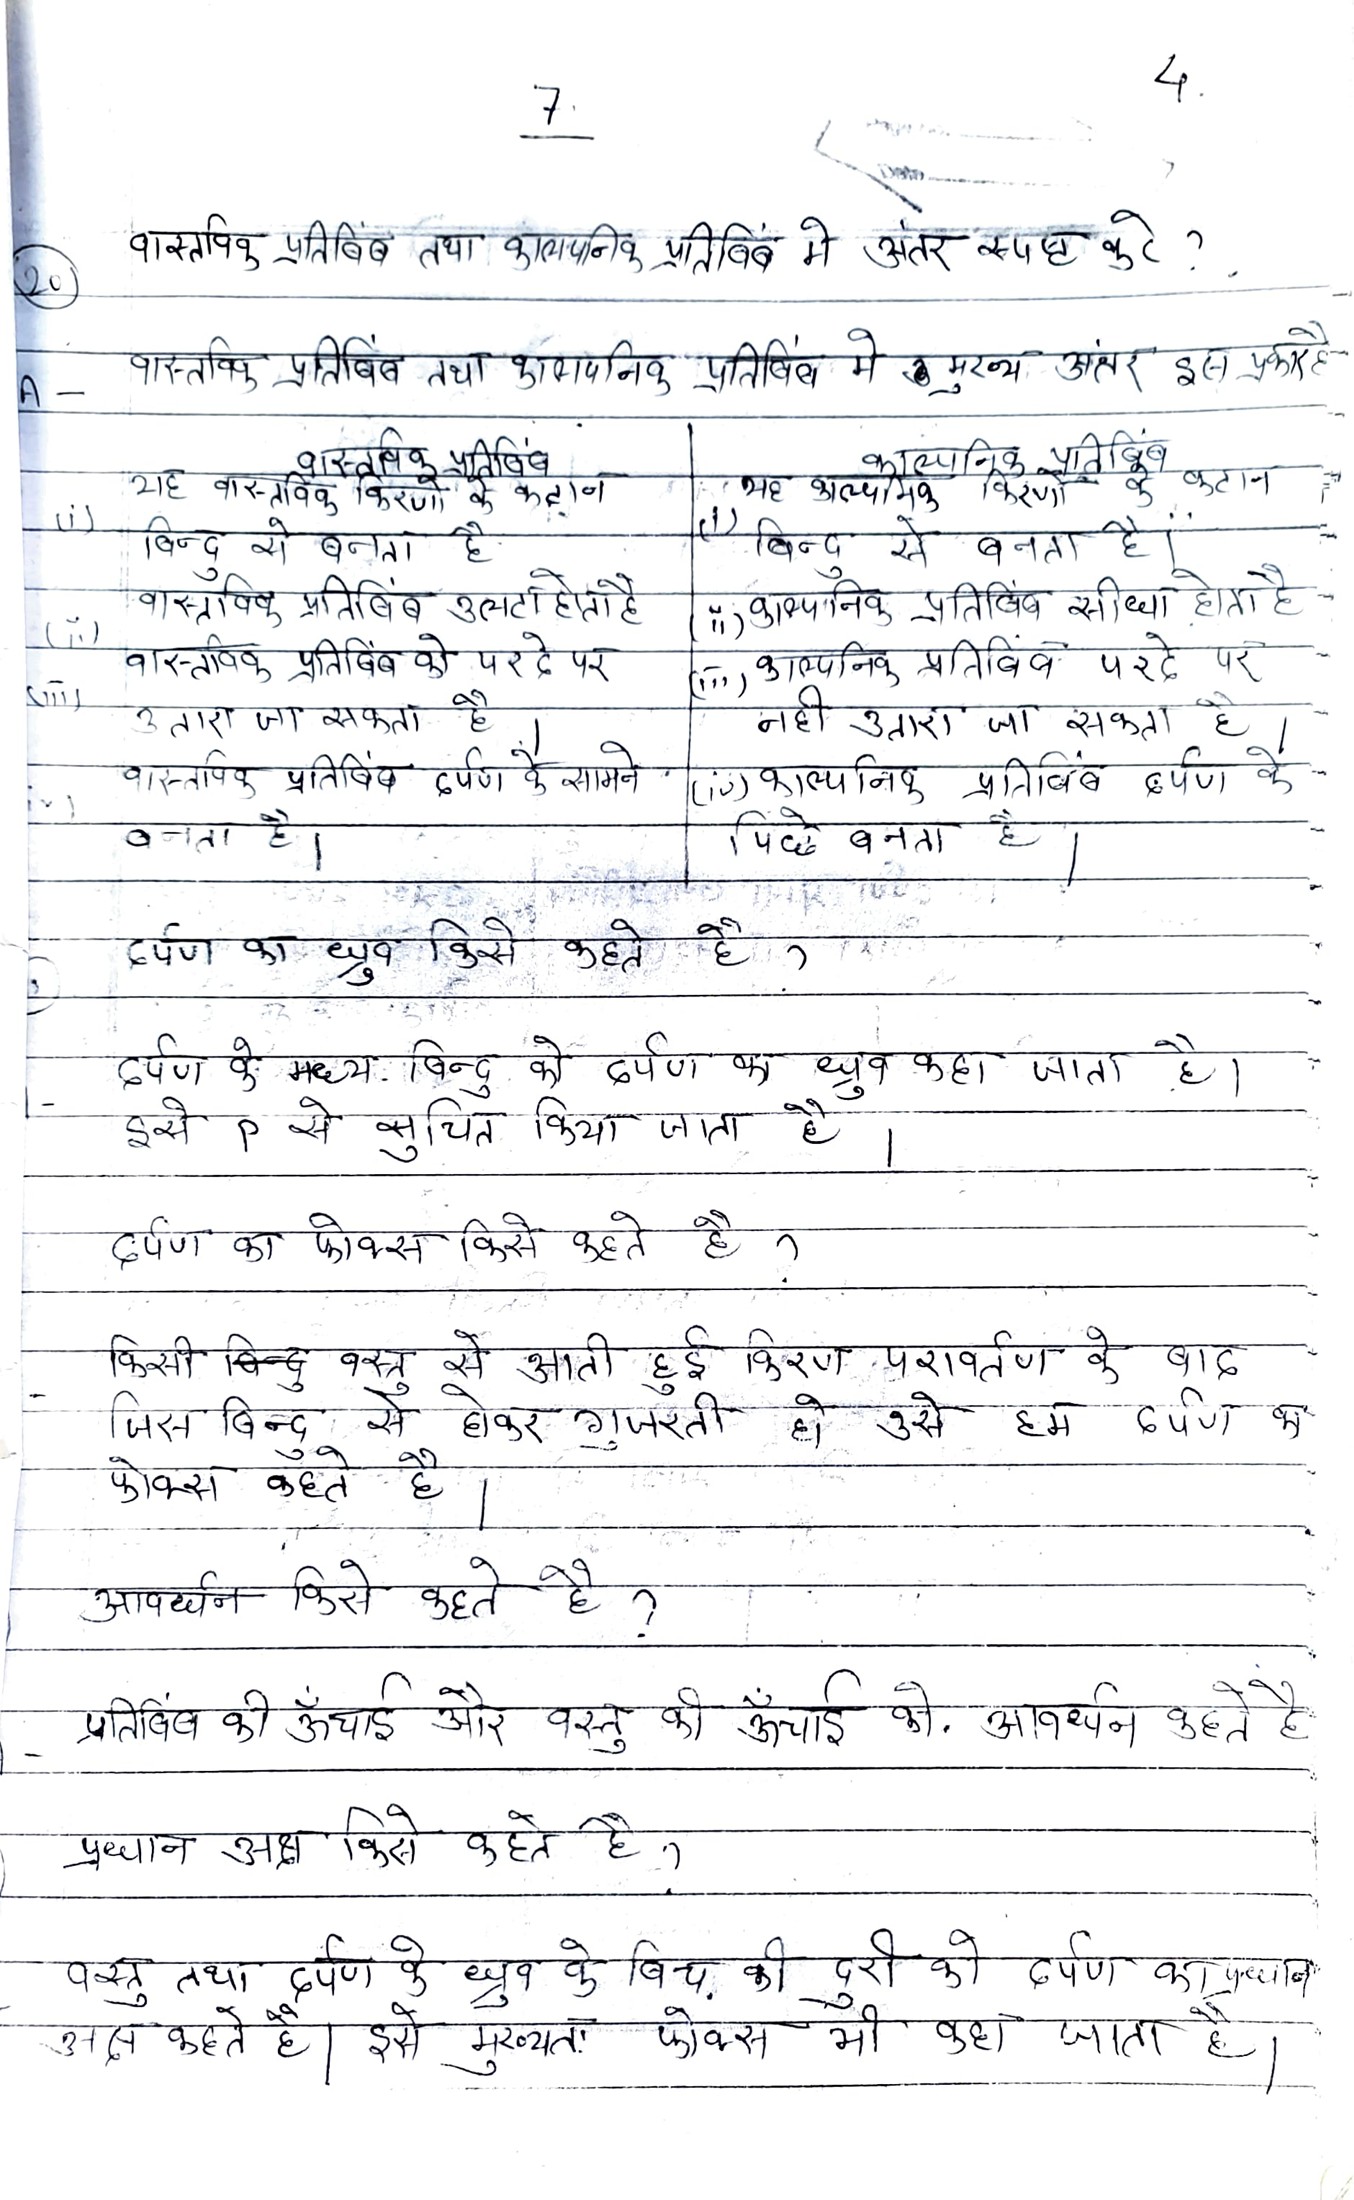 4.
7.
वास्तविक प्रतिबिंब तथा काल्पनिक प्रतिबिंब मे अंतर स्पष्ट करे ?
20
वास्तविक प्रतिबिंब तथा काल्पनिक प्रतिबिंब मे मुख्य अंतर इस प्रकार है
A –
वास्तविक प्रतिबिंब
(i) यह वास्तविक किरणों के कटान
बिन्दु से बनता है
(ii) वास्तविक प्रतिबिंब उल्टा होता है
(iii) वास्तविक प्रतिबिंब को परदे पर
उतारा जा सकता है ।
वास्तविक प्रतिबिंब दर्पण के सामने
बनता है ।
काल्पनिक प्रतिबिंब
(i) यह काल्पनिक किरणों के कटान
बिन्दु से बनता है ।
(ii) काल्पनिक प्रतिबिंब सीधा होता है
(iii) काल्पनिक प्रतिबिंब परदे पर
नही उतारा जा सकता है ।
(iv) काल्पनिक प्रतिबिंब दर्पण के
पिछे बनता है ।
दर्पण का ध्रुव किसे कहते है ?
दर्पण के मध्य बिन्दु को दर्पण का ध्रुव कहा जाता है ।
इसे P से सुचित किया जाता है ।
दर्पण का फोक्स किसे कहते है ?
किसी वस्तु से आती हुई किरण परावर्तण के बाद
जिस बिन्दु से होकर गुजरती हो उसे हम दर्पण का
फोक्स कहते है ।
आवर्ध्धन किसे कहते है ?
प्रतिबिंब की ऊँचाई और वस्तु की ऊँचाई को. आवर्ध्धन कहते है
प्रधान अक्ष किसे कहते है ?
वस्तु तथा दर्पण के ध्रुव के बिच की दुरी को दर्पण का प्रधान
अक्ष कहते है । इसे मुख्यतः फोक्स भी कहा जाता है ।